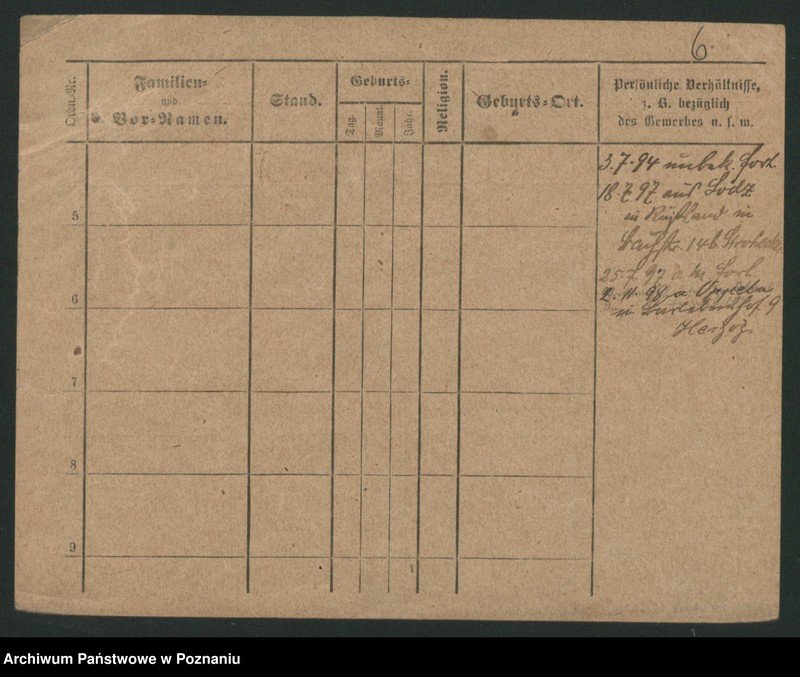 6.
Ordn.-Nr.
Familien-
und
Vor-Namen.
Stand.
Geburts-
Tag.
Monat.
Jahr.
Religion.
Geburts-Ort.
Persönliche Verhältnisse,
z. B. bezüglich
des Gewerbes u. s. w.
3.7.94 unbek. fort.
18.7 97 aus Lodz
in Rußland in
14b
25.7. 97 fort
2.11.98 a
in 9
Herzog
5
6
7
8
9
Archiwum Państwowe w Poznaniu